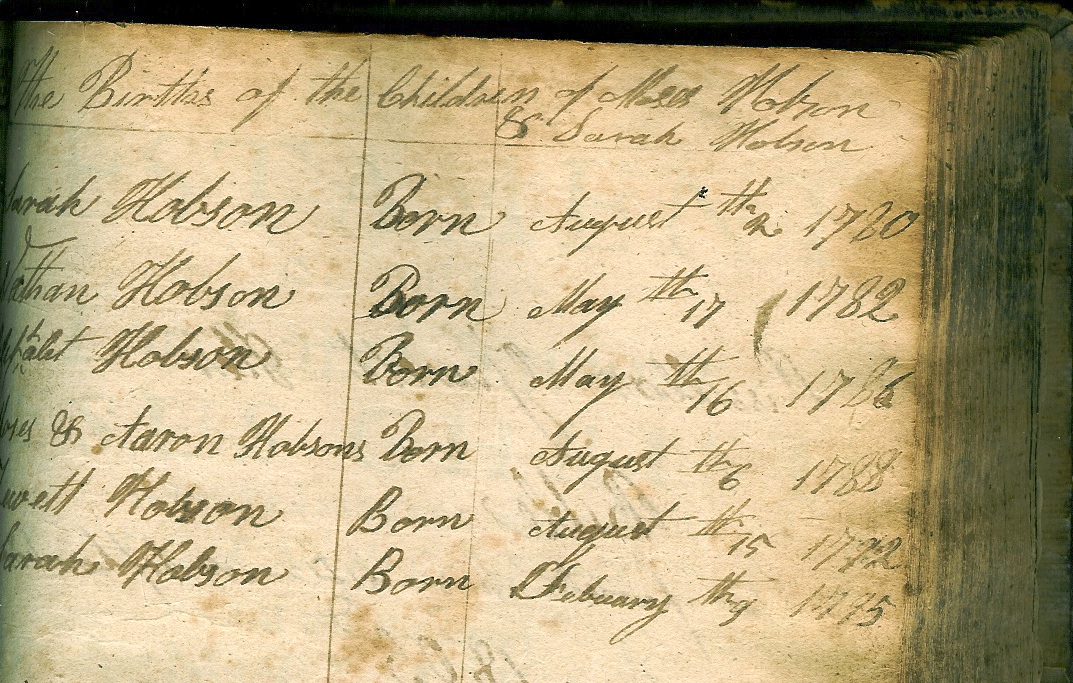 the Births of the Children of Moses Hobson
& Sarah Hobson
arah Hobson Born August th 2 1780
Nathan Hobson Born May th 17 1782
Hobson Born May th 16 1786
oses & Aaron Hobsons Born August th 6 1788
Hobson Born August th 15 1792
Sarah Hobson Born Febuary th 9 1795